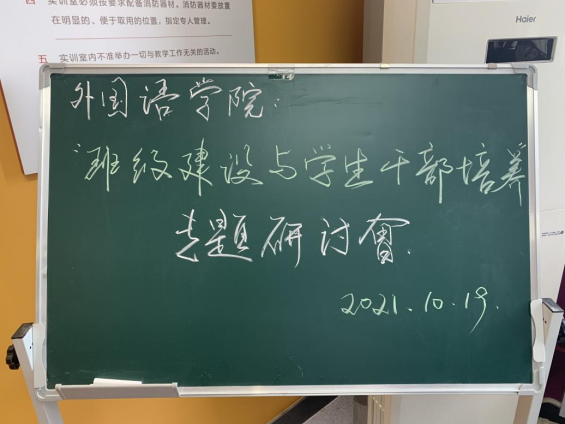 四 实训室必须按要求配备消防器材。消防器材要放置
在明显的、便于取用的位置，指定专人管理。
五 实训室内不准举办一切与教学工作无关的活动。
Haier
外国语学院：
“班级建设与学生干部培养
专题研讨會.
2021.10.19.